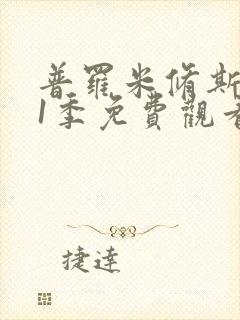 普羅米脩斯
1季免費觀看
捷達